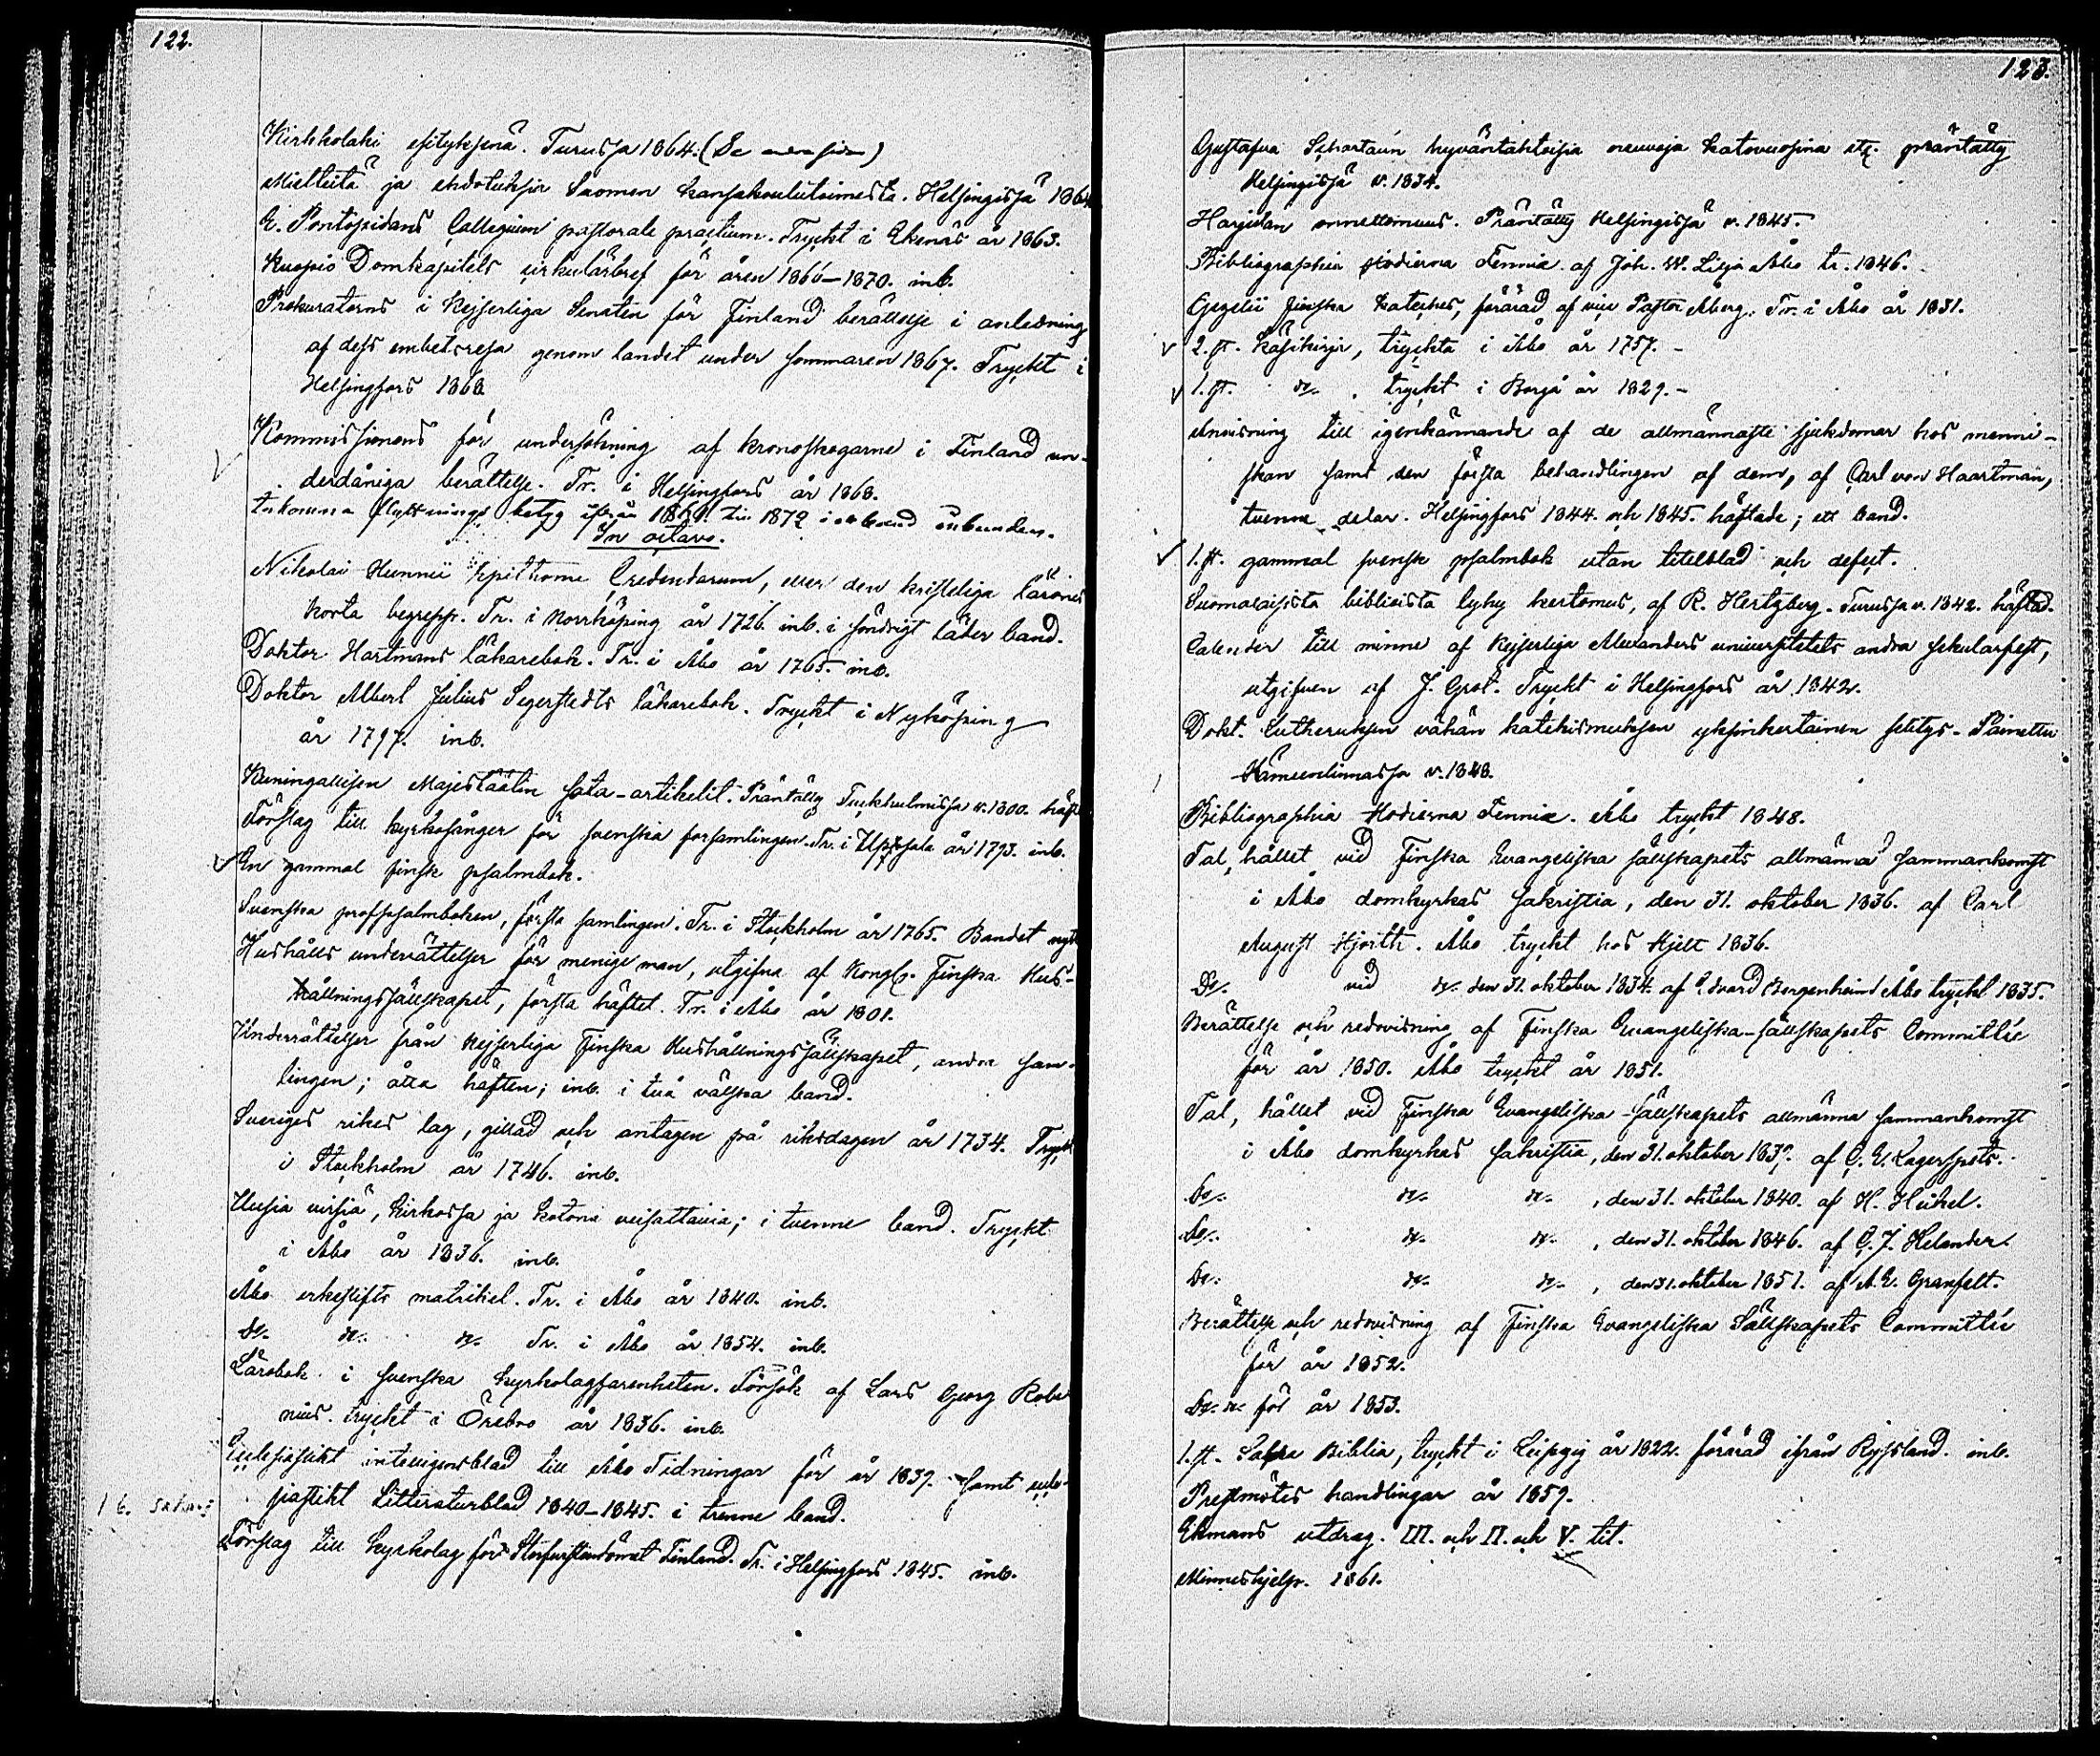 122.
Kirkkolaki esityksenä. Turussa 1864. (Se andra sidan)
Mietteitä ja ehdotuksia Suomen kansakoulutoimesta. Helsingissä 186
E. Pontoppidans Collegium pastorale practicum. Tryckt i Ekenäs år 1863.
Kuopio Domkapitels cirkulärbref för åren 1866–1870. inb.
Prokuratorns i Kejserliga Senaten för Finland berättelse i anledning
af dess embetsresa genom landet under sommaren 1867. Tryckt i
Helsingfors 1868
Kommissionens för undersökning af kronoskogarne i Finland un-
derdåniga berättelse. Tr. i Helsingfors år 1868.
Inkomna flyttnings betyg ifrån 1861 till 1872 inbunden.
In octavo.
Nikolai Hunnii Epithome Credendorum, eller den kristeliga lärones
korta begrepp. Tr. i Norrköping år 1726. inb. i söndrigt läder band.
Doktor Hartmans läkarebok. Tr. i Åbo år 1765. inb.
Doktor Albert Julius Segerstedts läkarebok. Tryckt i Nyköping
år 1797. inb.
Kuningallisen Majestäätin sota-artikelit. Präntätty Tuckhulmissa v. 1800. häft
Förslag till kyrkosånger för svenska församlingen. Tr. i Uppsala år 1793. inb.
En gammal finsk psalmbok.
Svenska profpsalmboken, första samlingen. Tr. i Stockholm år 1765. Bandet nytt
Hushålls underrättelser för menige man, utgifna af Kongl. Finska Hus-
hållningssällskapet, första häftet. Tr. i Åbo år 1801.
Underrättelser från Kejserliga Finska Hushållningssällskapet, andra sam-
lingen; åtta häften; inb. i två välska band.
Sveriges rikes lag, gillad och antagen på riksdagen år 1734. Tryckt
i Stockholm år 1746. inb.
Uusia virsiä, kirkossa ja kotona veisattavia; i tvenne band. Tryckt
i Åbo år 1836. inb.
Åbo erkestifts matrikel. Tr. i Åbo år 1840. inb.
Do. do. do. Tr. i Åbo år 1854. inb.
Lärobok i svenska kyrkolagfarenheten. Försök af Lars Georg Rabe
nius. Tryckt i Örebro år 1836. inb.
Ecclesiastikt intelligensblad till Åbo Tidningar för år 1839. samt eccle-
siastikt Litteraturblad 1840–1845. i trenne band.
16.
Förslag till kyrkolag för Storfurstendömet Finland. Tr. i Helsingfors 1845. inb.
123.
Gustafva Schartau'n hyväntahtoisia neuvoja katovuosina etc. präntätty
Helsingissä v. 1834.
Harjulan onnettomuus. Präntätty Helsingissä v. 1845.
Bibliographia hodierna Fennia af Joh. W. Lilja Åbo tr. 1846.
Gezelii finska kateches, förärad af vice Pastor Åberg. Tr. i Åbo år 1831.
2. st. Käsikirja, tryckta i Åbo år 1757. –
1. st. do. , tryckt i Borgå år 1829. –
Anvisning till igenkännande af de allmännaste sjukdomar hos menni-
skan samt den första behandlingen af dem, af Carl von Haartman,
tvenne delar. Helsingfors 1844. och 1845. häftade; ett band.
1. st. gammal svensk psalmbok utan titelblad och defect.
Suomalaisista biblioista lyhy kertomus, af R. Hertzberg. Turussa v. 1842. häftad.
Calender till minne af Kejserliga Alexanders universitetets andra sekularfest,
utgifven af J. Grot. Tryckt i Helsingfors år 1842.
Dokt. Lutheruksen vähän katekismuksen yksinkertainen selitys. Painettu
Hämeenlinnassa v. 1848.
Bibliographia Hodierna Fenniæ. Åbo tryckt 1848.
Tal, hållet vid Finska Evangeliska sällskapets allmänna sammankomst
i Åbo domkyrkas sakristia, den 31. oktober 1836. af Carl
August Hjorth. Åbo tryckt hos Hjelt 1836.
Do. vid do. den 31. oktober 1834. af Edvard Borgenheim Åbo tryckt 1835.
Berättelse och redovisning af Finska Evangeliska-sällskapets Committée
för år 1850. Åbo tryckt år 1851.
Tal, hållet vid Finska Evangeliska-sällskapets allmänna sammankomst
i Åbo domkyrkas sakristia, den 31. oktober 1839. af C. E. Lagerspets.
Do. do. do. , den 31. oktober 1840. af H. Heikel.
Do. do. do. , den 31. oktober 1846. af C. J. Helander.
Do. do. do. , den 31. oktober 1851. af A. E. Granfelt.
Berättelse och redovisning af Finska Evangeliska Sällskapets Committée
för år 1852.
Do. do. för år 1853.
1. st. Biblia, tryckt i Leipzig år 1822. förärad ifrån Ryssland. inb.
Prestmötes handlingar år 1859.
Ekmans utdrag. III. och II. och V. tit.
Minneshjelp. 1861.